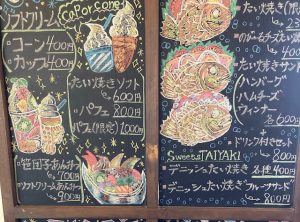 ソフトクリーム
Cap or cone!
コーン 400円
カップ 400円
たい焼きソフト
600円
パフェ
800円
パフェ(限定)
1000円
笹団子あんみつ
700円
ソフトクリームあんみつ
900円
たい焼き
チーズたい焼
たい焼きサンド
ハンバーグ
ハムチーズ
ウィンナー
各600円
+
ドリンク付きセット
800円
Sweets TAIYAKI
デニッシュたい焼き 各種400円
デニッシュたい焼きフルーツサンド
800円